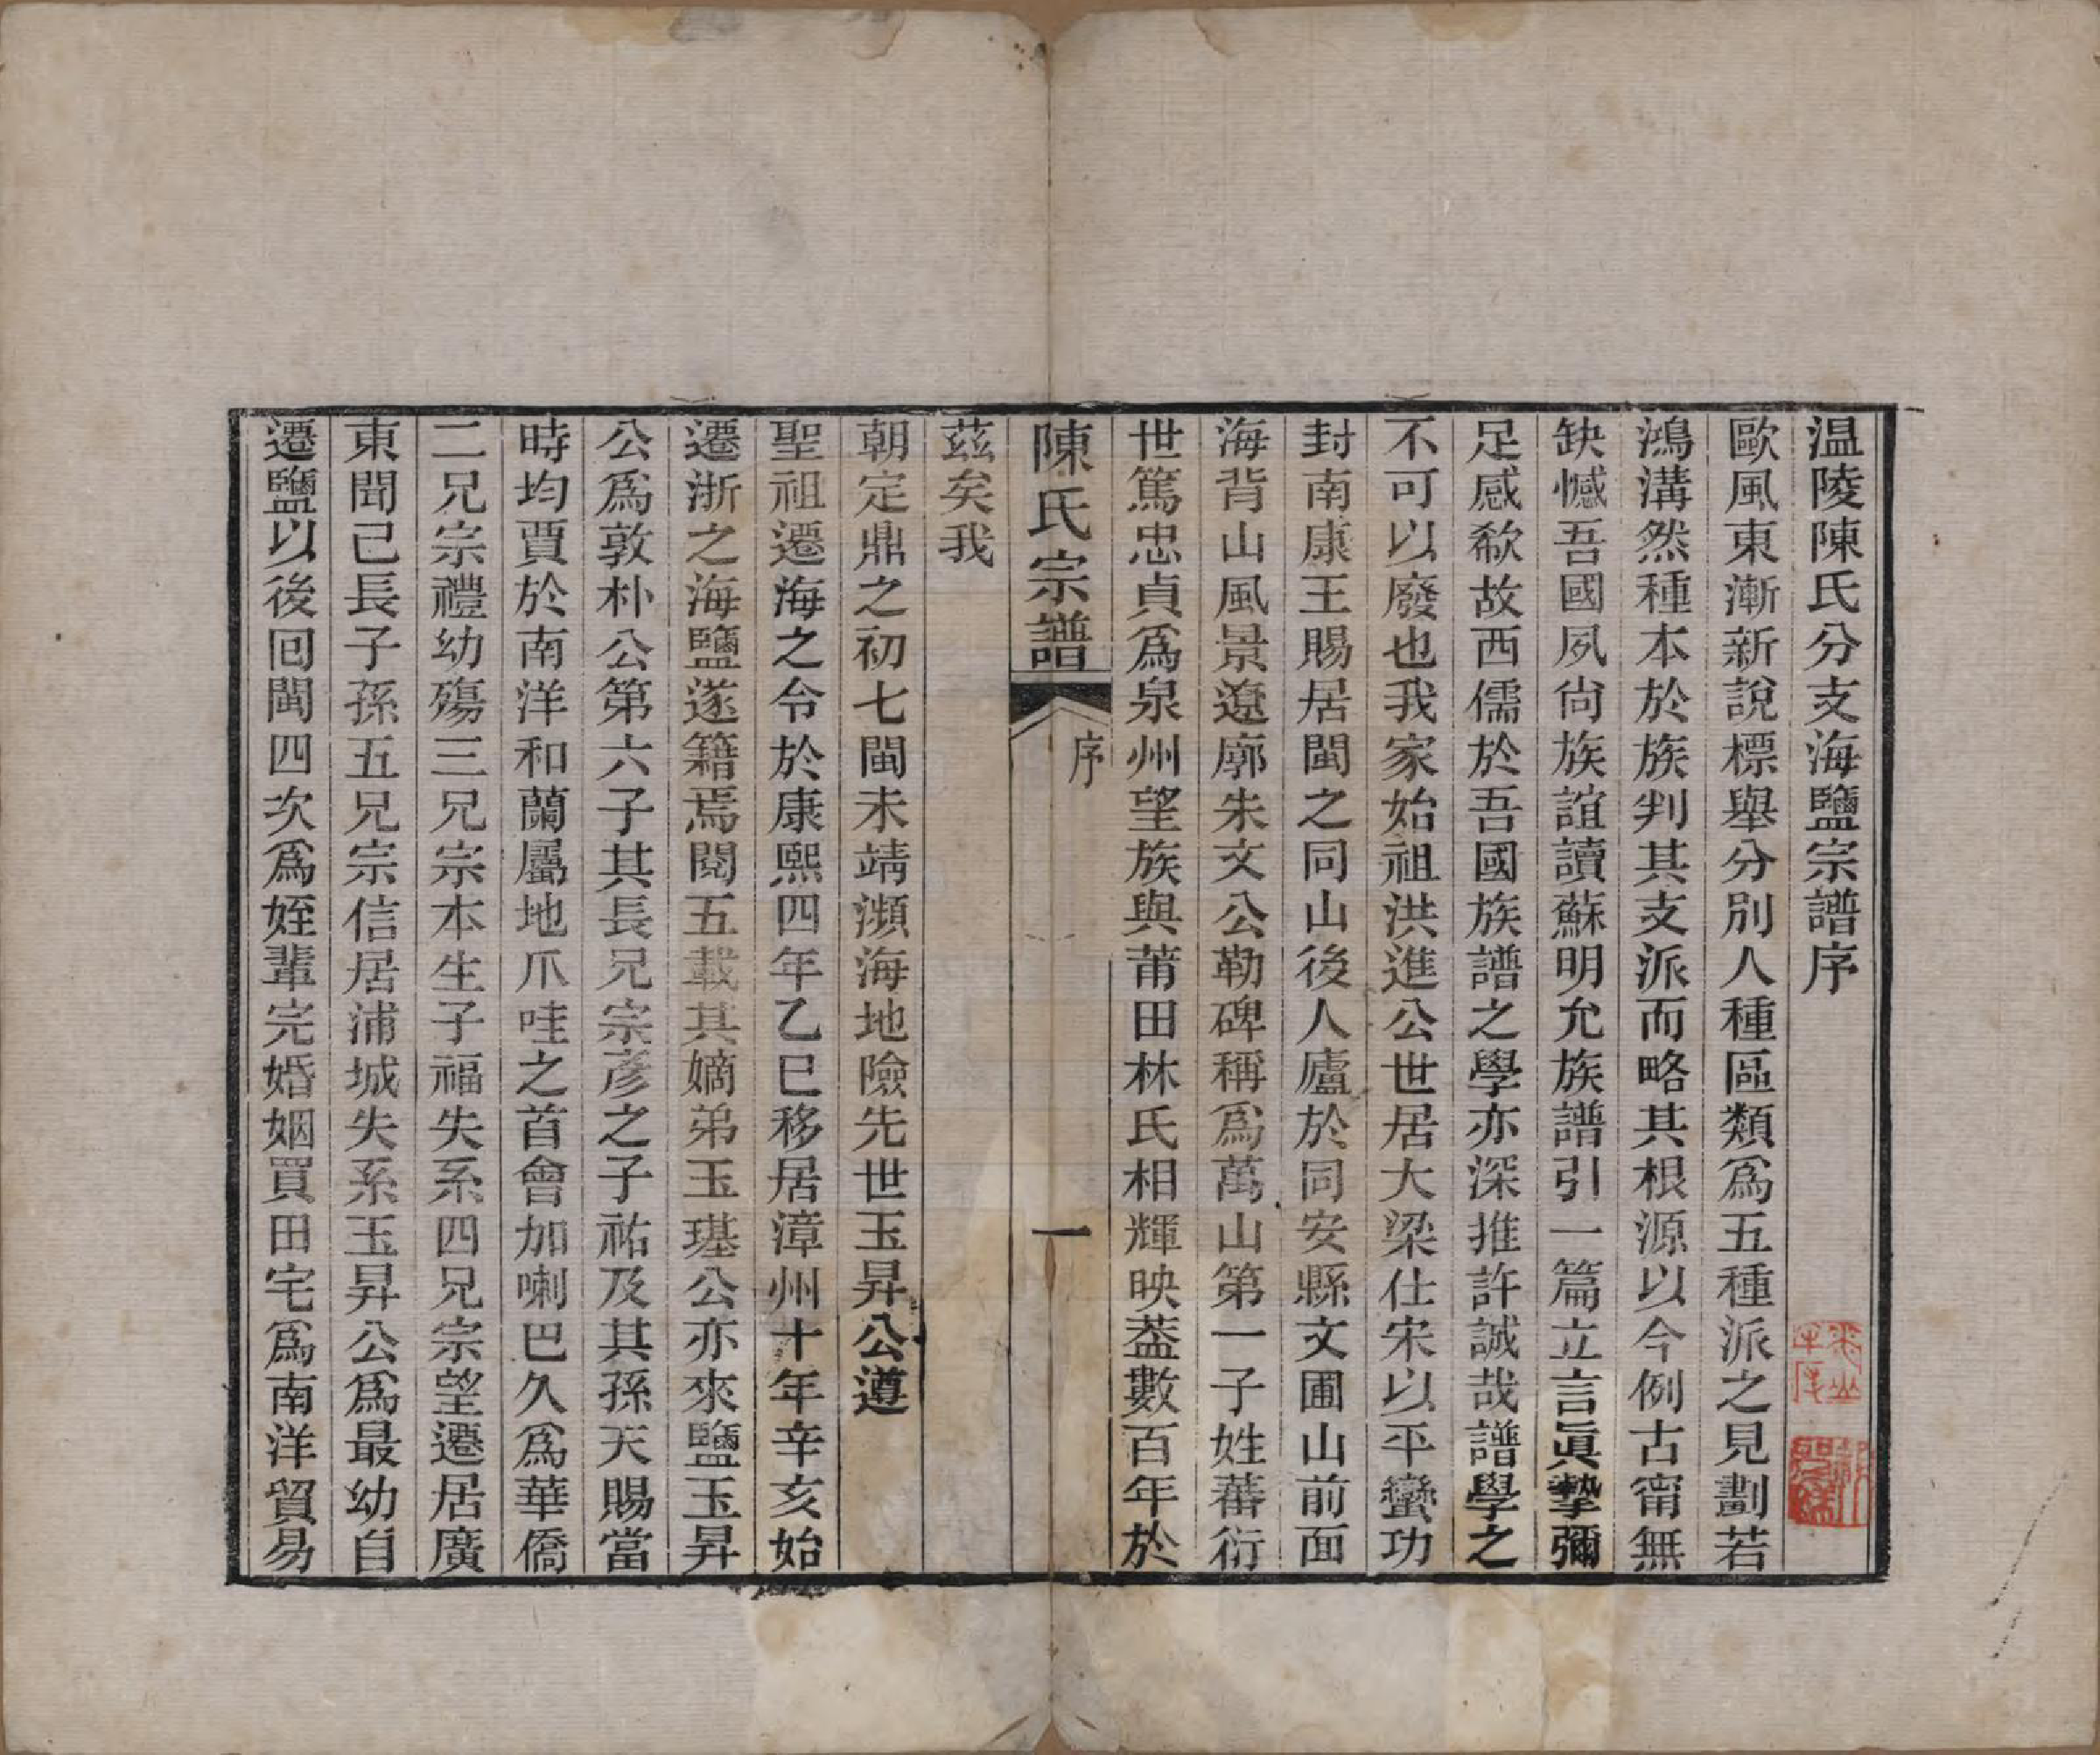 温陵陳氏分支海鹽宗譜序
歐風東漸新說標舉分別人種區類爲五種派之見劃若
鴻溝然種本於族判其支派而略其根源以今例古甯無
缺憾吾國夙尙族誼讀蘇明允族譜引一篇立言眞摯彌
足感欷故西儒於吾國族譜之學亦深推許誠哉譜學之
不可以廢也我家始祖洪進公世居大梁仕宋以平蠻功
封南康王賜居閩之同山後人廬於同安縣文圃山前面
海背山風景遼廓朱文公勒碑稱爲萬山第一子姓蕃衍
世篤忠貞爲泉州望族與莆田林氏相輝映葢數百年於
陳氏宗譜
序
一
茲矣我
朝定鼎之初七閩未靖瀕海地險先世玉昇公遵
聖祖遷海之令於康熙四年乙巳移居漳州十年辛亥始
遷浙之海鹽遂籍焉閱五載其嫡弟玉璂公亦來鹽玉昇
公爲敦朴公第六子其長兄宗彥之子祐及其孫天賜當
時均賈於南洋和蘭屬地爪哇之首會加喇巴久爲華僑
二兄宗禮幼殤三兄宗本生子福失系四兄宗望遷居廣
東聞己長子孫五兄宗信居浦城失系玉昇公爲最幼自
遷鹽以後囘閩四次爲姪輩完婚姻買田宅爲南洋貿易